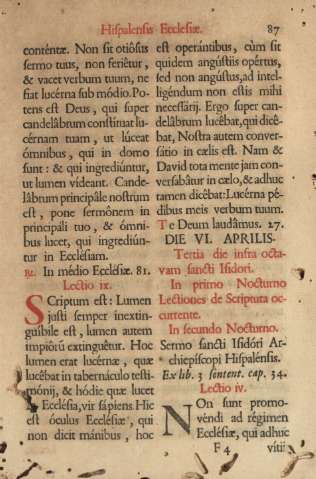 Hispalensis Ecclesiæ. 87
conténtæ. Non sit otiósus
sermo tuus, non feriétur,
& vacet verbum tuum, ne
fiat lucérna sub módio. Po-
tens est Deus, qui super
candelábrum constituat lu-
cérnam tuam, ut lúceat
ómnibus, qui in domo
sunt: & qui ingrediúntur,
ut lumen vídeant. Cande-
lábrum principále nostrum
est, pone sermónem in
principáli tuo, & ómni-
bus lucet, qui ingrediún-
tur in Ecclesiam.
℟. In médio Ecclésiæ. 81.
Lectio ix.
SCriptum est: Lumen
justi semper inextin-
guíbile est, lumen autem
impiórũ extinguétur. Hoc
lumen erat lucérnæ, quæ
lucébat in tabernáculo testi-
mónij, & hódie quæ lucet
Ecclesia, vir sápiens. Hic
est óculus Ecclésiæ, qui
non dicit mánibus, hoc
est operántibus, cùm sit
quidem angústiis opértus,
sed non angústus, ad intel-
ligéndum non estis mihi
necessárij. Ergo super can-
delábrum lucébat, qui dicé-
bat, Nostra autem conver-
sátio in cælis est. Nam &
David tota mente jam con-
versabátur in cælo, & adhuc
tamen dicébat: Lucérna pé-
dibus meis verbum tuum.
Te Deum laudámus. 27.
DIE VI. APRILIS.
Tertia die infra octa-
vam sancti Isidori.
In primo Nocturno
Lectiones de Scriptura oc-
currente.
In secundo Nocturno.
Sermo sancti Isidóri Ar-
chiepíscopi Hispalensis.
Ex lib. 3 sentent. cap. 34.
Lectio iv.
NOn sunt promo-
véndi ad régimen
Ecclésiæ, qui adhuc
F 4 vitii